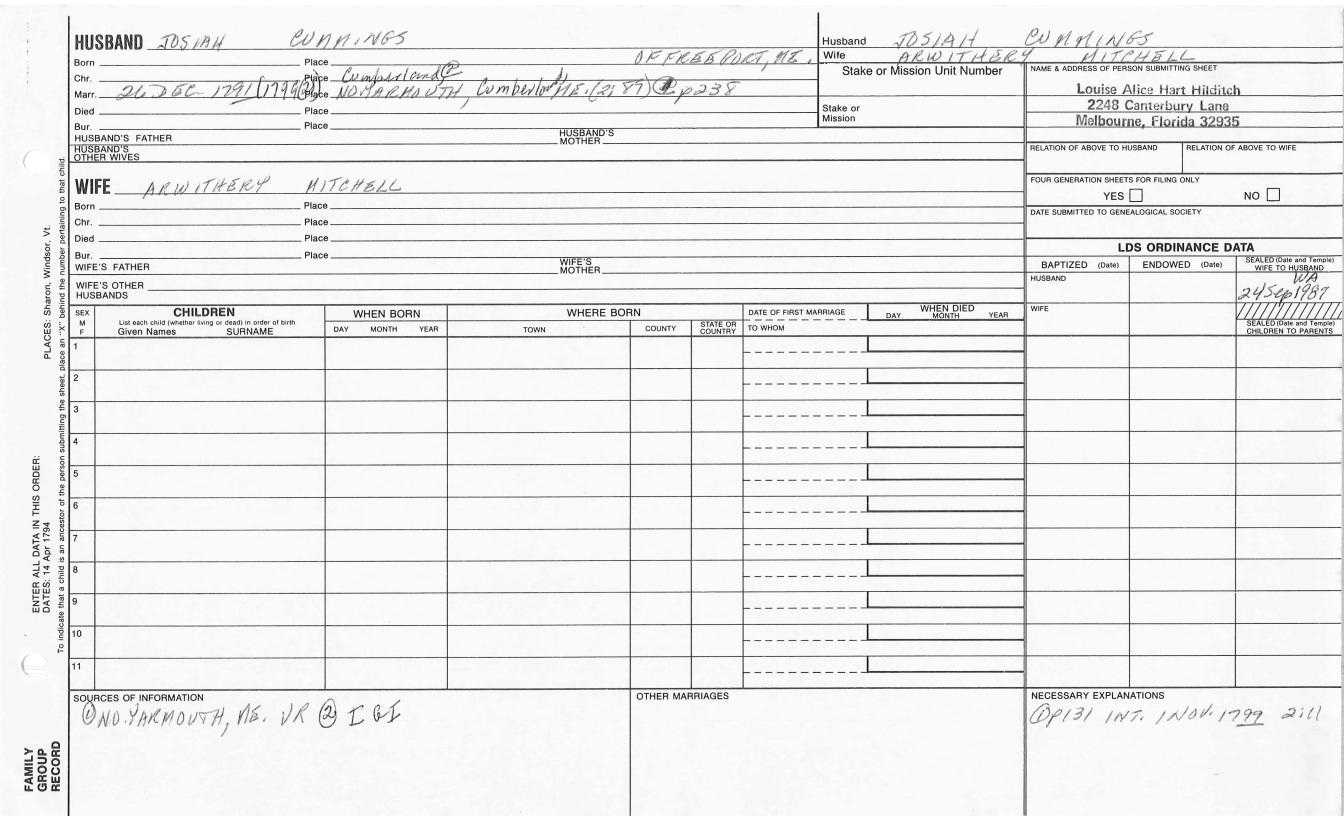 HUSBAND JOSIAH CUMMINGS
Born Place OF FREEPORT, ME.
Chr. Place Cumberland ②
Marr. 26 DEC 1791 (1799②) Place NO. YARMOUTH, Cumberland, ME. (2; 87) ① p238
Died Place
Bur. Place
HUSBAND'S FATHER HUSBAND'S MOTHER
HUSBAND'S OTHER WIVES
WIFE ARWITHERY MITCHELL
Born Place
Chr. Place
Died Place
Bur. Place
WIFE'S FATHER WIFE'S MOTHER
WIFE'S OTHER HUSBANDS
Husband JOSIAH CUMMINGS
Wife ARWITHERY MITCHELL
Stake or Mission Unit Number
Stake or Mission
NAME & ADDRESS OF PERSON SUBMITTING SHEET
Louise Alice Hart Hilditch
2248 Canterbury Lane
Melbourne, Florida 32935
RELATION OF ABOVE TO HUSBAND RELATION OF ABOVE TO WIFE
FOUR GENERATION SHEETS FOR FILING ONLY
YES NO
DATE SUBMITTED TO GENEALOGICAL SOCIETY
LDS ORDINANCE DATA
BAPTIZED (Date) ENDOWED (Date) SEALED (Date and Temple) WIFE TO HUSBAND
HUSBAND WA
24 Sep 1987
WIFE
SEALED (Date and Temple) CHILDREN TO PARENTS
SEX M F
CHILDREN
List each child (whether living or dead) in order of birth
Given Names SURNAME
WHEN BORN
DAY MONTH YEAR
WHERE BORN
TOWN COUNTY STATE OR COUNTRY
DATE OF FIRST MARRIAGE
TO WHOM
WHEN DIED
DAY MONTH YEAR
1
2
3
4
5
6
7
8
9
10
11
SOURCES OF INFORMATION
① NO. YARMOUTH, ME. VR ② IGI
OTHER MARRIAGES
NECESSARY EXPLANATIONS
① p131 INT. 1 NOV. 1799
PLACES: Sharon, Windsor, Vt.
ENTER ALL DATA IN THIS ORDER:
DATES: 14 Apr 1794
To indicate that a child is an ancestor of the person submitting the sheet, place an "X" behind the number pertaining to that child.
FAMILY
GROUP
RECORD